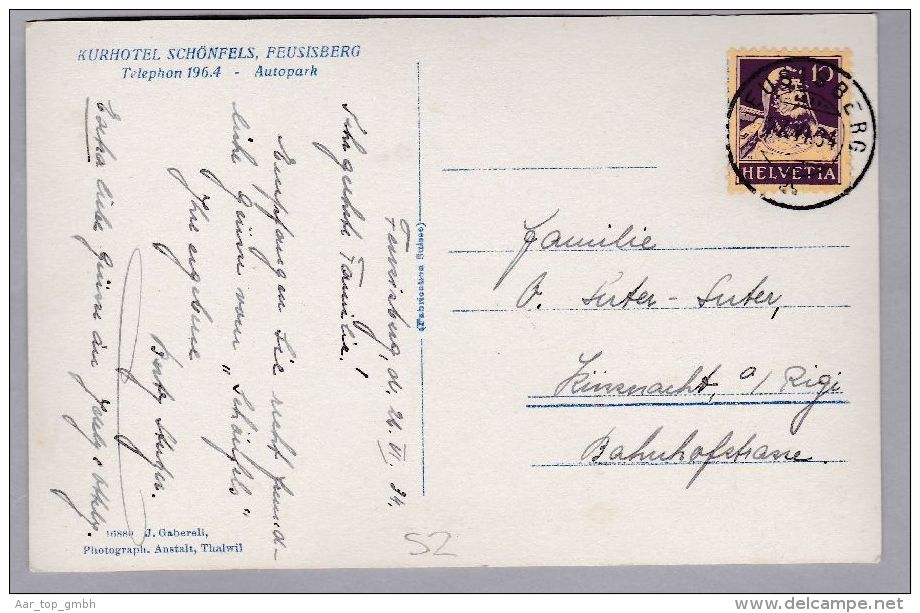 KURHOTEL SCHÖNFELS, FEUSISBERG
Telephon 196.4 - Autopark
Feusisberg, d. 26. VI. 34.
Sehr geehrte Familie!
Empfangen Sie recht freund-
liche Grüsse vom „Schönfels"
Ihre ergebene
Berty
Extra liebe Grüsse an
16889 J. Gaberell,
Photograph. Anstalt, Thalwil
(Fabrication Suisse)
10
HELVETIA
FEUSISBERG
Familie
O. Suter-Suter,
Küssnacht, a/Rigi
Bahnhofstrasse.
SZ
Aar_top_gmbh
www.delcampe.net